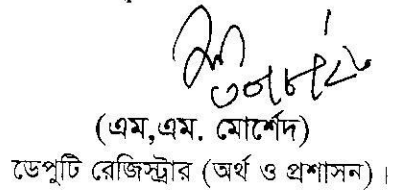 (এম,এম. মোর্শেদ)
ডেপুটি রেজিস্ট্রার (অর্থ ও প্রশাসন)।